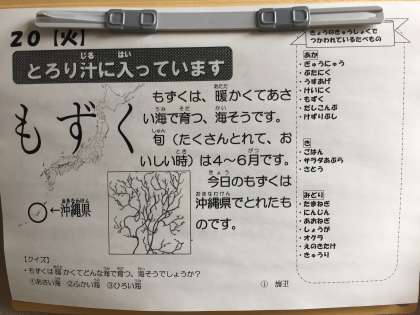 20【火】
とろり汁に入っています
もずく
もずくは、暖かくてあさ
い海で育つ、海そうです。
旬(たくさんとれて、お
いしい時)は4〜6月です。
今日のもずくは
沖縄県でとれたも
のです。
←沖縄県
【クイズ】
・もずくは暖かくてどんな海で育つ、海そうでしょうか?
①あさい海 ②ふかい海 ③ひろい海
正解 ①
きょうのきゅうしょくで
つかわれているたべもの
あか
・ぎゅうにゅう
・ぶたにく
・うすあげ
・けいにく
・もずく
・だしこんぶ
・けずりぶし
き
・ごはん
・サラダあぶら
・さとう
みどり
・たまねぎ
・にんじん
・あおねぎ
・しょうが
・オクラ
・えのきたけ
・きゅうり